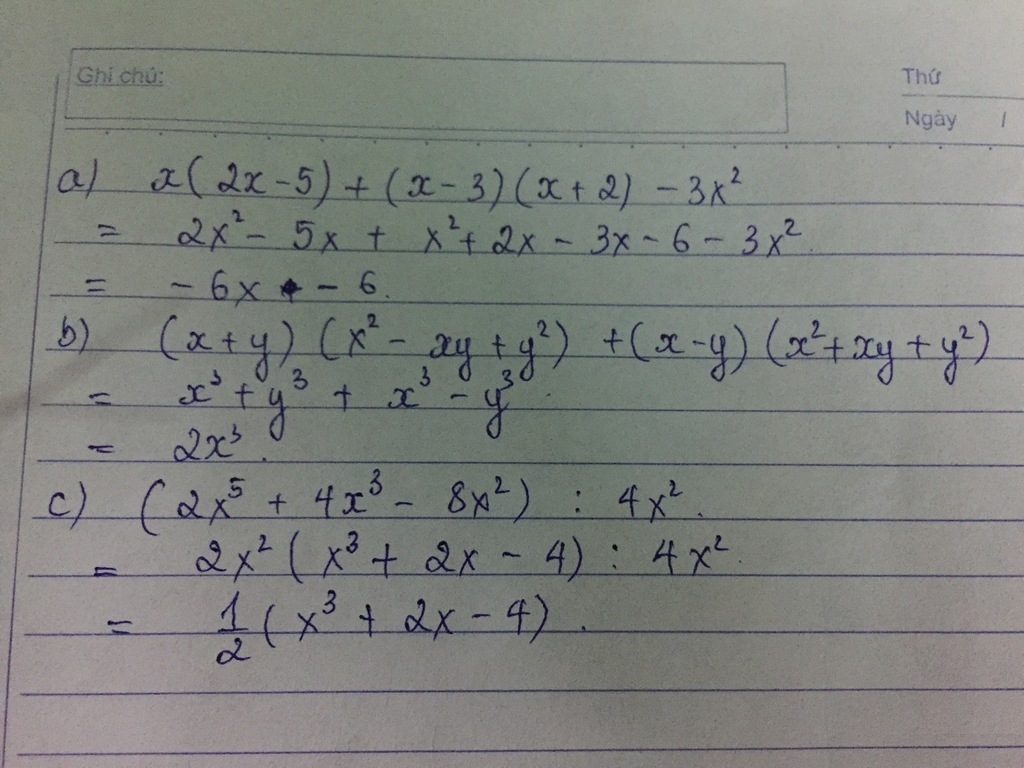 Ghi chú:
Thứ
Ngày /
a) x(2x-5) + (x-3)(x+2) - 3x²
= 2x² - 5x + x² + 2x - 3x - 6 - 3x².
= -6x - 6.
b) (x+y)(x² - xy + y²) + (x-y)(x² + xy + y²)
= x³ + y³ + x³ - y³.
= 2x³.
c) (2x⁵ + 4x³ - 8x²) : 4x².
= 2x²(x³ + 2x - 4) : 4x².
= 1/2 (x³ + 2x - 4).